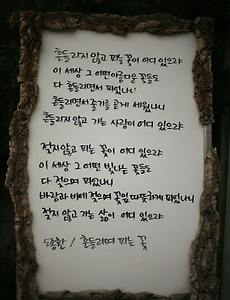 흔들리지 않고 피는 꽃이 어디 있으랴
이 세상 그 어떤 아름다운 꽃들도
다 흔들리면서 피었나니
흔들리면서 줄기를 곧게 세웠나니
흔들리지 않고 가는 사랑이 어디 있으랴
젖지 않고 피는 꽃이 어디 있으랴
이 세상 그 어떤 빛나는 꽃들도
다 젖으며 피었나니
바람과 비에 젖으며 꽃잎 따뜻하게 피웠나니
젖지 않고 가는 삶이 어디 있으랴
도종환 / 흔들리며 피는 꽃